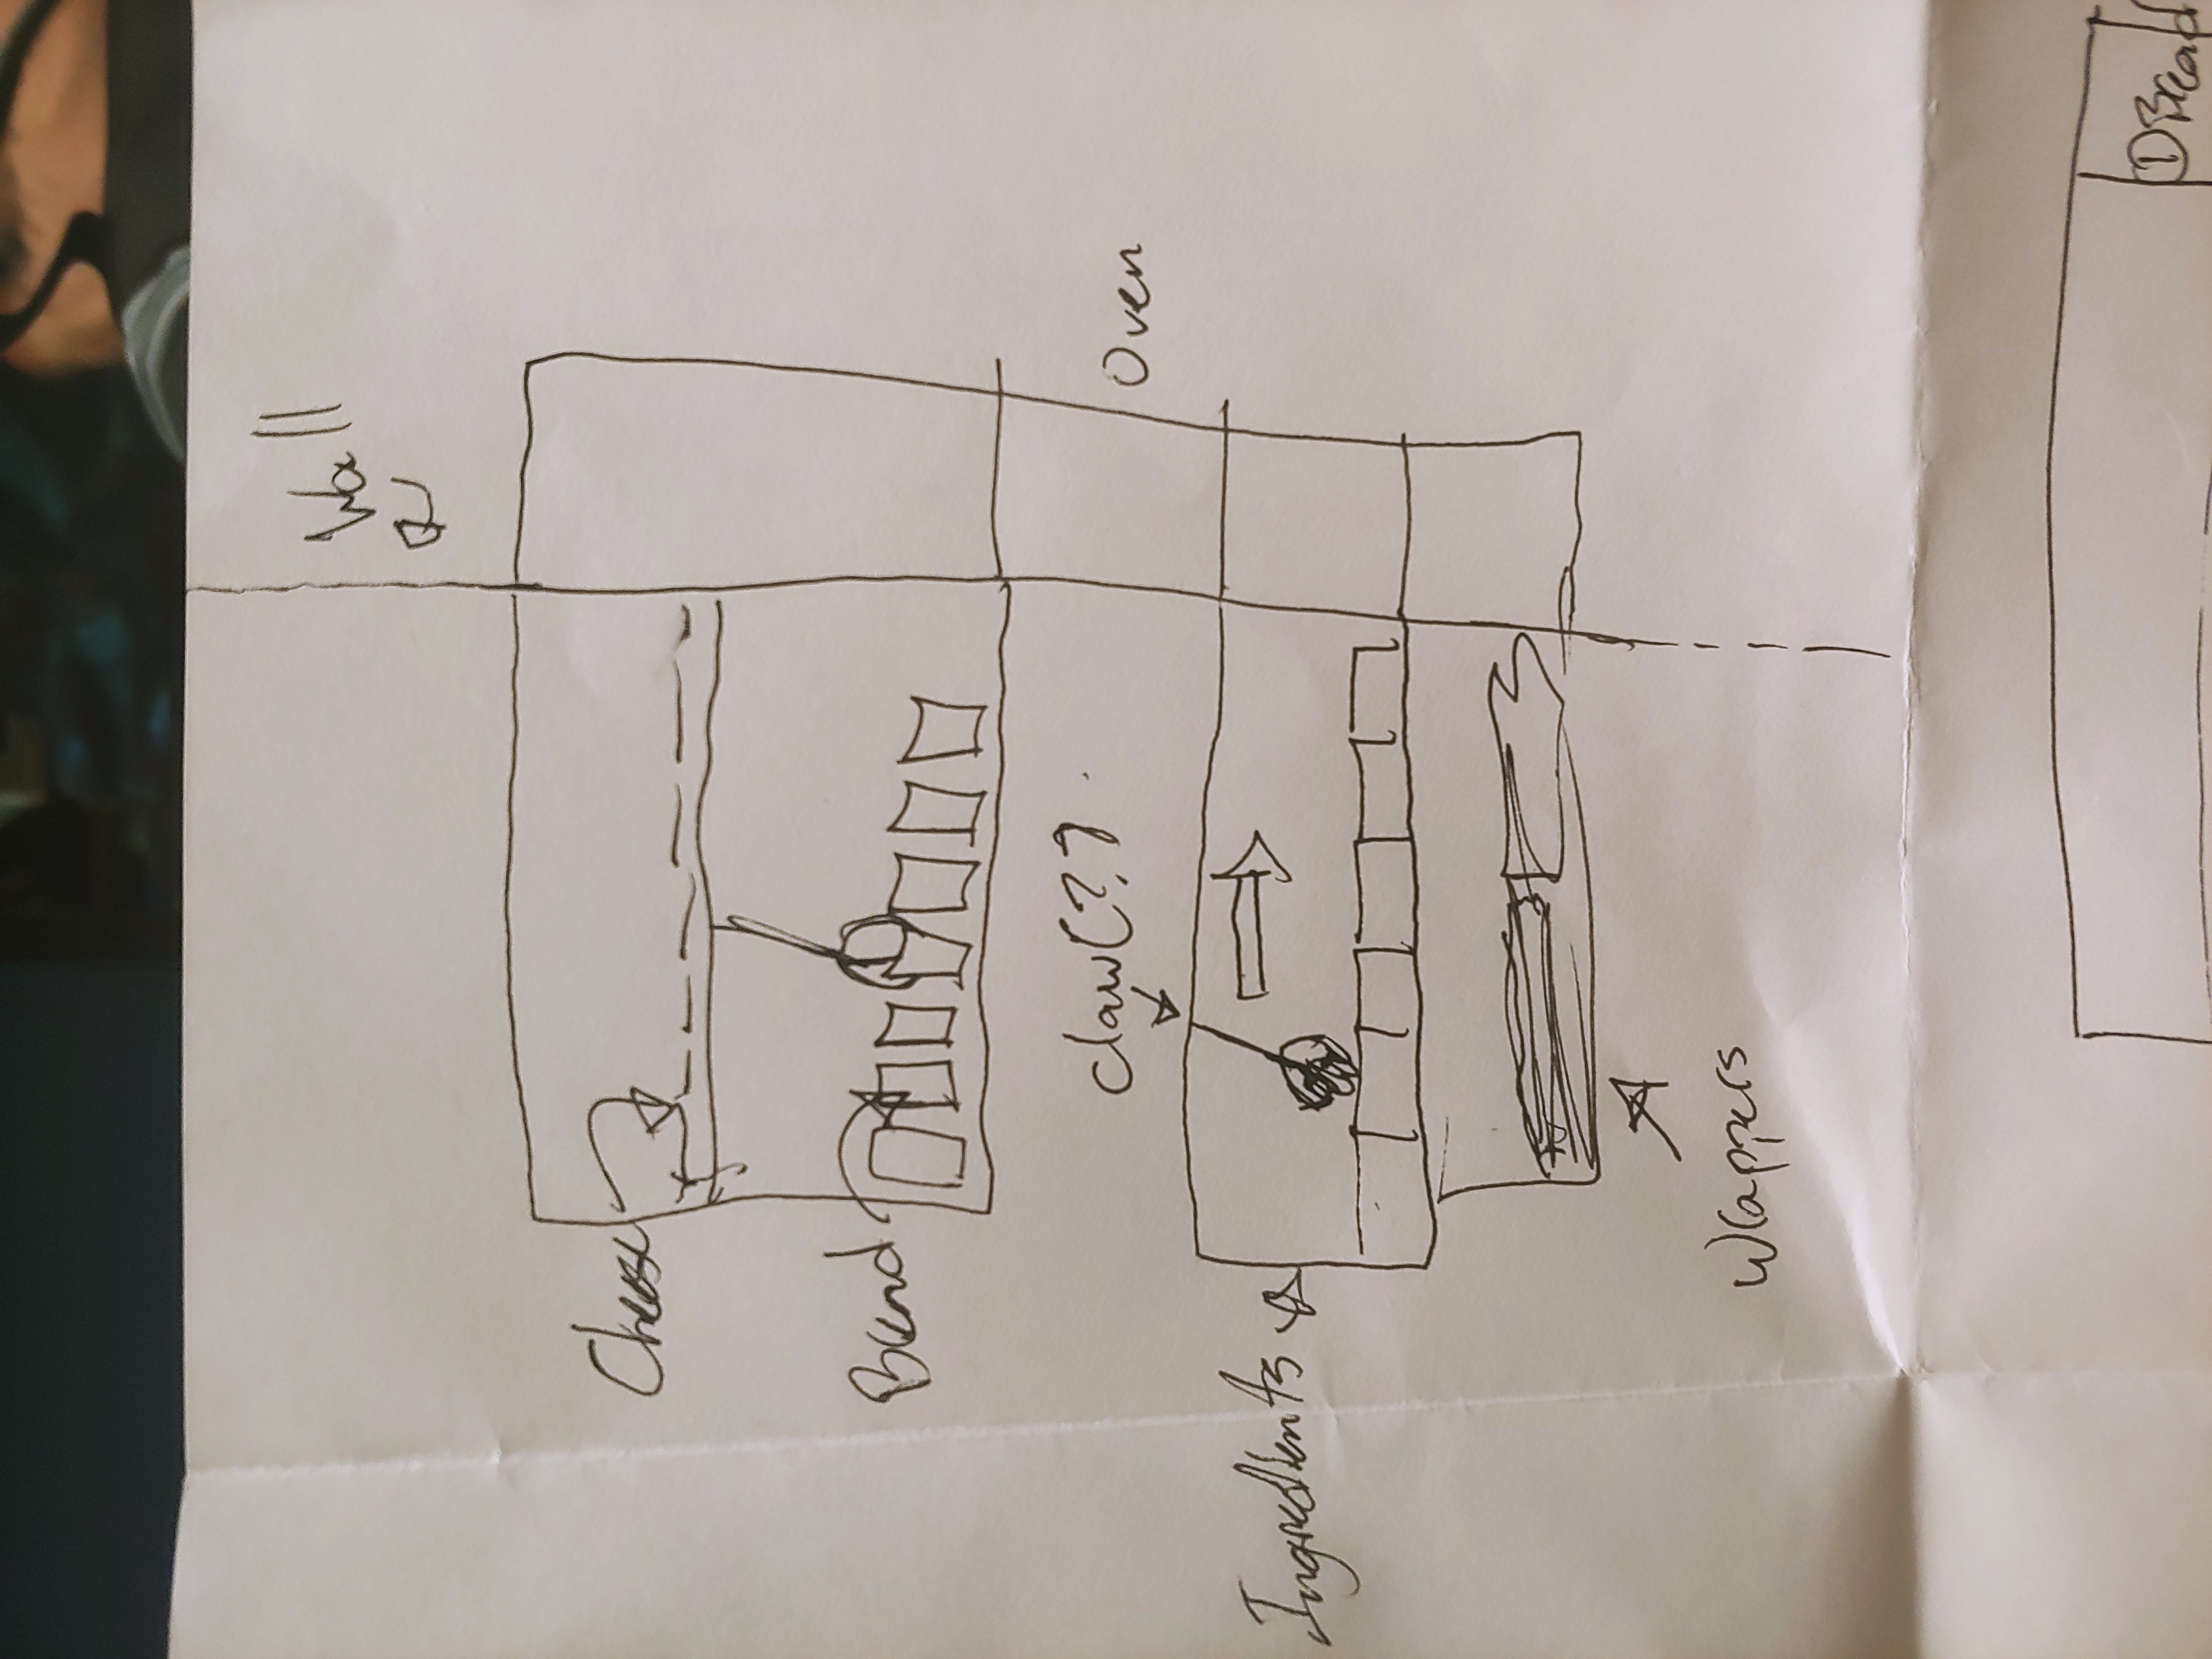 Wall
Cheese
Bread
claw(??)
Oven
Ingredients
Wrappers
① Bread